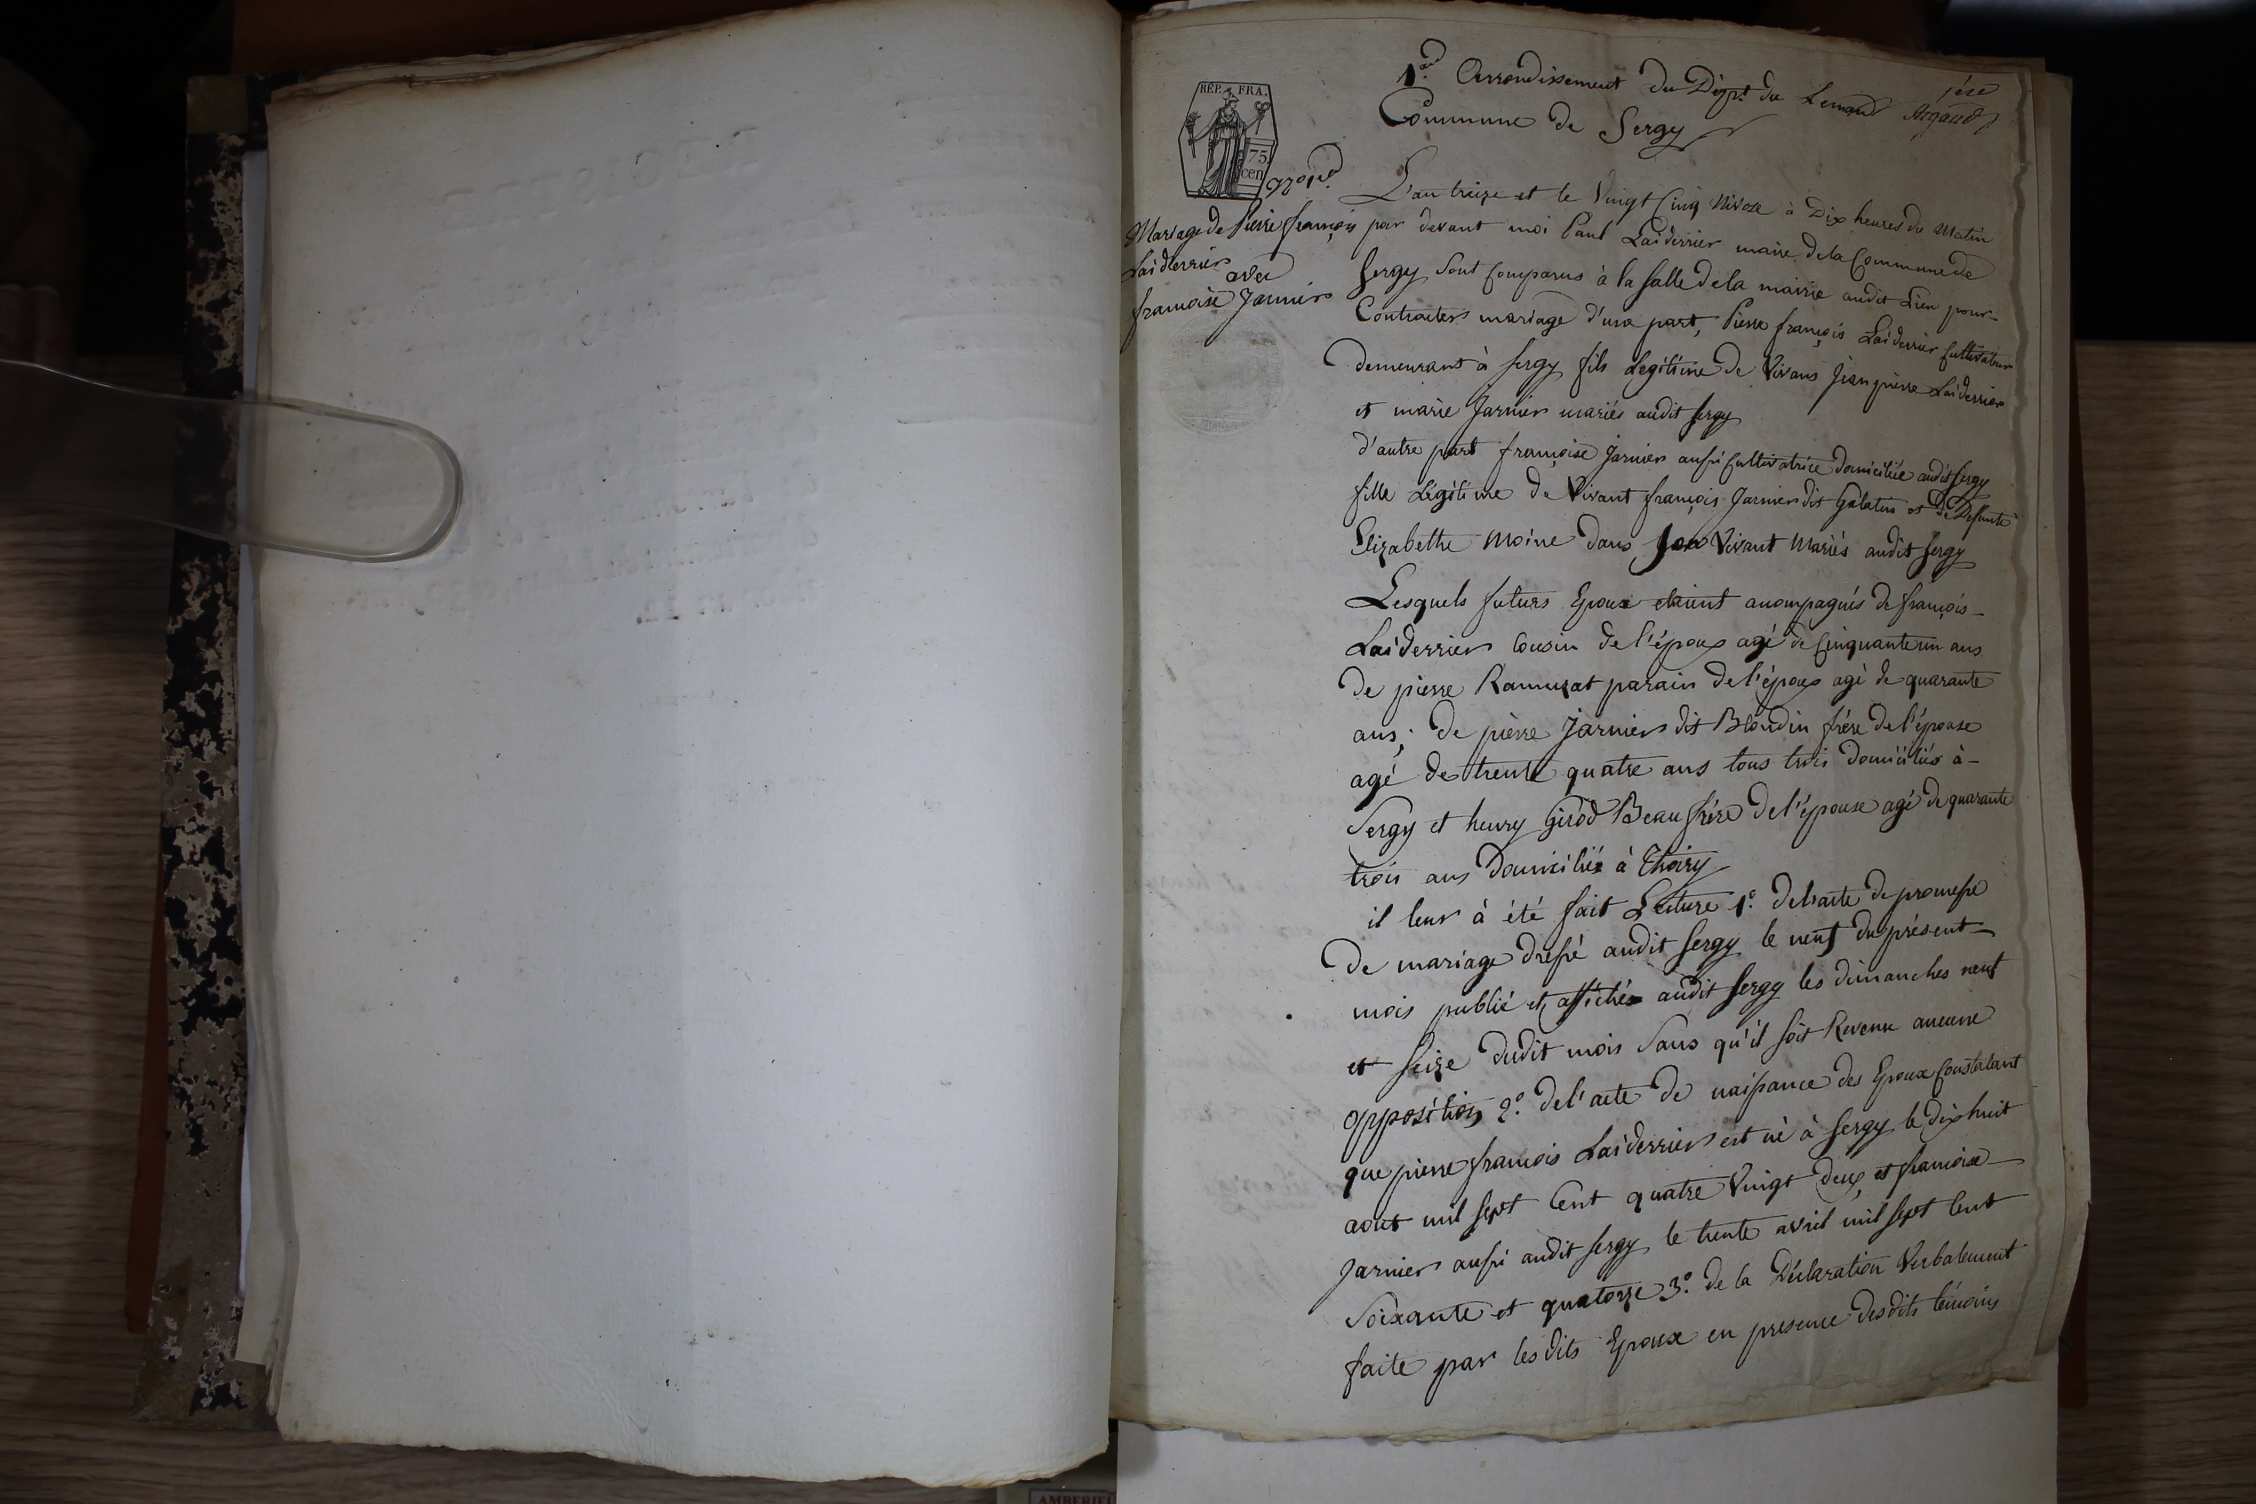 1er Arrondissement du Dept du Leman
1ère
Commune de Sergy
RÉP. FRA.
75
cen
L'an treize et le Vingt Cinq Nivose à Dix heures du Matin
Mariage de Pierre françois
Laiderrier
avec
francoise Jarnier
par devant moi Paul Laiderrier maire de la Commune de
Sergy sont Comparus à la salle de la mairie audit Lieu pour
Contracter mariage d'une part, Pierre françois Laiderrier Cultivateur
demeurant à Sergy fils Legitime de Vivans Jean pierre Laiderrier
et marie Jarnier mariés audit Sergy
d'autre part françoise Jarnier aussi Cultivatrice domiciliée audit Sergy
fille Légitime de Vivant françois Jarnier dit Galatin et de Defunte
Elizabethe Moine dans son Vivant Mariés audit Sergy
Lesquels futurs Epoux etaient acompagnés de françois
Laiderrier Cousin de l'époux agé de Cinquante un ans
de pierre Ramuzat parain de l'époux agé de quarante
ans; de pièrre Jarnier dit Blondin frére de l'épouse
agé de trente quatre ans tous trois domiciliés à
Sergy et henry Girod Beau frére de l'épouse agé de quarante
trois ans Domicilié à Thoiry
il leur à été fait Lecture 1°. de l'acte de promesse
de mariage dressé audit Sergy le neuf du présent
mois publié et affichés audit Sergy les dimanches neuf
et Seize dudit mois Sans qu'il soit Revenu aucune
opposition, 2°. de l'acte de naissance des Epoux Constatant
que pierre francois Laiderrier est né à Sergy le dix huit
aout mil sept Cent quatre Vingt deux et francoise
Jarnier aussi audit Sergy le trente avril mil sept Cent
Soixante et quatorze 3°. de la Déclaration Verbalement
faite par les dits Epoux en presence des dits témoins
AMBERIEU